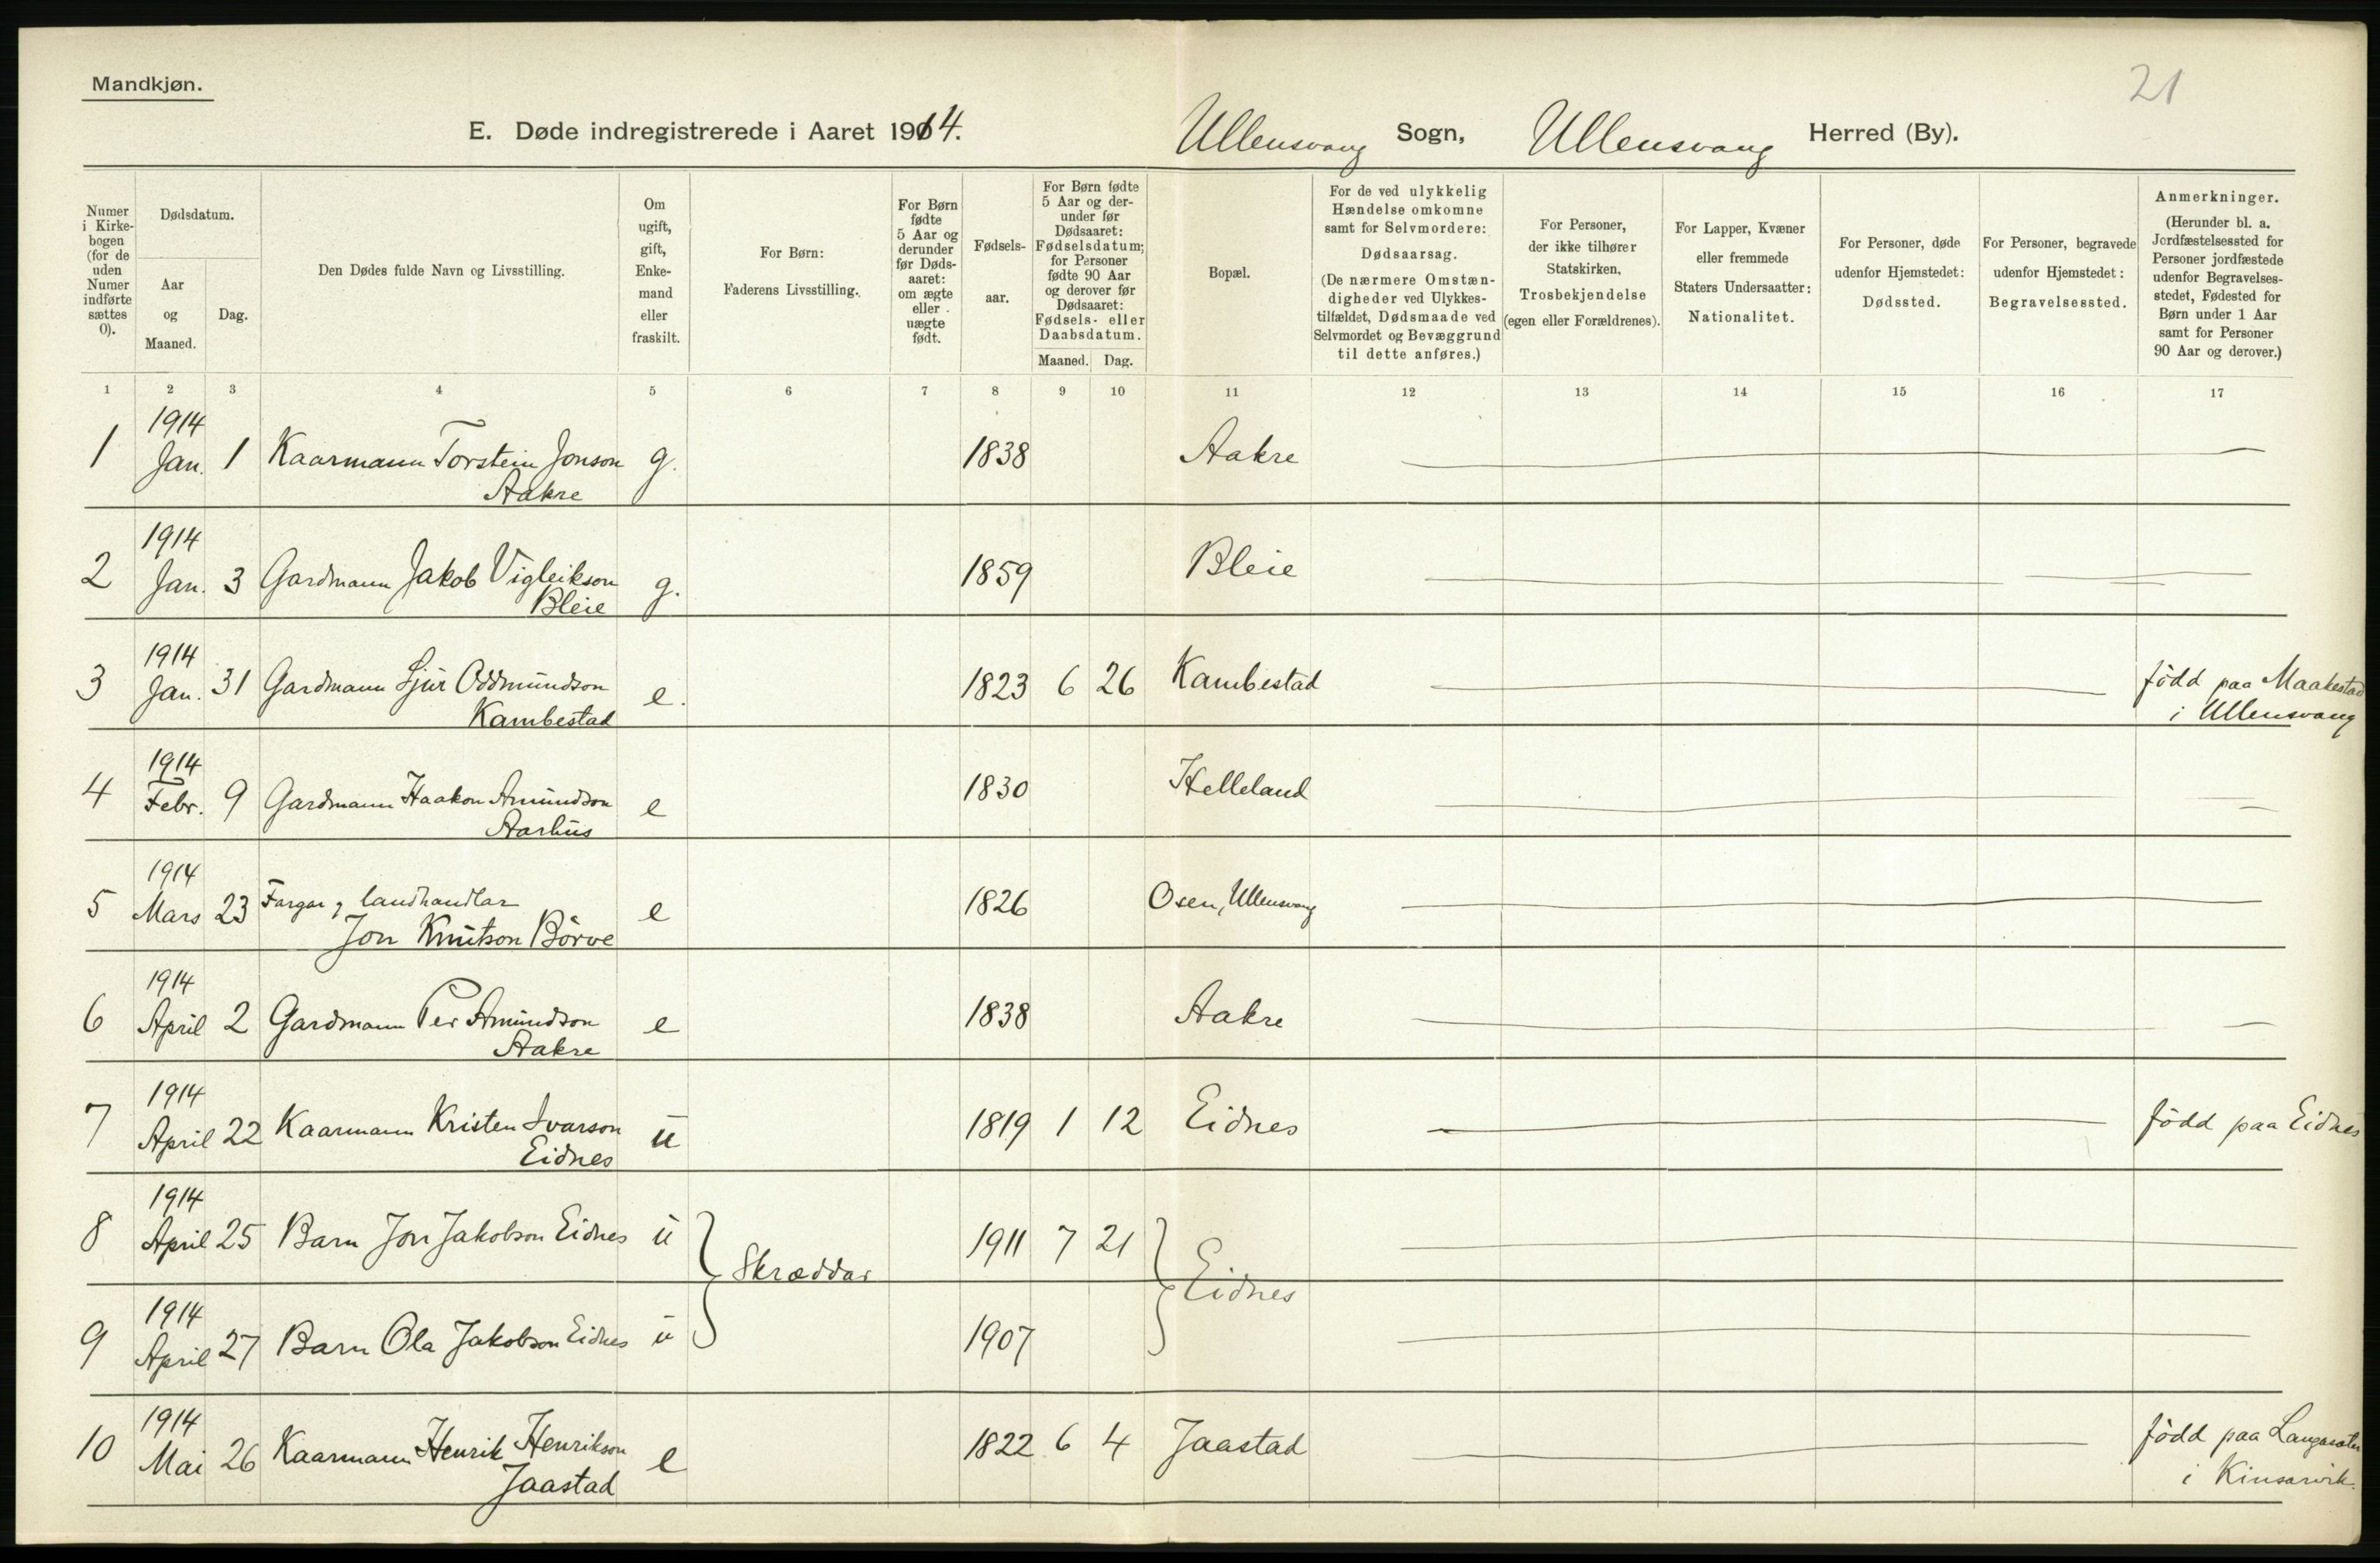 Mandkjøn.
21
E. Døde indregistrerede i Aaret 1914.
Ullensvang Sogn, Ullensvang Herred (By).
Numer i Kirkebogen (for de uden Numer indførte sættes 0).
Dødsdatum.
Aar og Maaned.
Dag.
Den Dødes fulde Navn og Livsstilling.
Om ugift, gift, Enkemand eller fraskilt.
For Børn:
Faderens Livsstilling.
For Børn fødte 5 Aar og derunder før Dødsaaret: om ægte eller uægte født.
Fødselsaar.
For Børn fødte 5 Aar og derunder før Dødsaaret: Fødselsdatum; for Personer fødte 90 Aar og derover før Dødsaaret: Fødsels- eller Daabsdatum.
Maaned. Dag.
Bopæl.
For de ved ulykkelig Hændelse omkomne samt for Selvmordere:
Dødsaarsag.
(De nærmere Omstændigheder ved Ulykkestilfældet, Dødsmaade ved Selvmordet og Bevæggrund til dette anføres.)
For Personer, der ikke tilhører Statskirken,
Trosbekjendelse
(egen eller Forældrenes).
For Lapper, Kvæner eller fremmede Staters Undersaatter:
Nationalitet.
For Personer, døde udenfor Hjemstedet:
Dødssted.
For Personer, begravede udenfor Hjemstedet:
Begravelsessted.
Anmerkninger.
(Herunder bl. a. Jordfæstelsessted for Personer jordfæstede udenfor Begravelsesstedet, Fødested for Børn under 1 Aar samt for Personer 90 Aar og derover.)
1 2 3 4 5 6 7 8 9 10 11 12 13 14 15 16 17
1 1914 Jan. 1 Kaarmann Torstein Jonson g. 1838 Aakre
Aakre
2 1914 Jan. 3 Gardmann Jakob Vigleikson g. 1859 Bleie
Bleie
3 1914 Jan. 31 Gardmann Sjur Oddmundson e. 1823 6 26 Kambestad född paa Maakestad
Kambestad i Ullensvang
4 1914 Febr. 9 Gardmann Haakon Amundson e 1830 Helleland
Aarhus
5 1914 Mars 23 Fargar og landhandlar e 1826 Osen, Ullensvang
Jon Knutson Börve
6 1914 April 2 Gardmann Per Amundson e 1838 Aakre
Aakre
7 1914 April 22 Kaarmann Kristen Ivarson u 1819 1 12 Eidnes född paa Eidnes
Eidnes
8 1914 April 25 Barn Jon Jakobson Eidnes u 1911 7 21
Skræddar Eidnes
9 1914 April 27 Barn Ola Jakobson Eidnes u 1907
10 1914 Mai 26 Kaarmann Henrik Henrikson e 1822 6 4 Jaastad född paa
Jaastad i Kinsarvik.